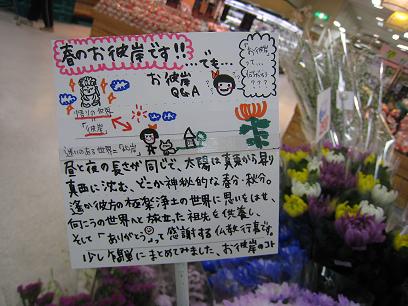 春のお彼岸です!!
・・・でも・・・
「お彼岸」
って・・・
何???
お彼岸
Q&A
悟りの世界
「彼岸」
迷いのある世界=「此岸」
昼と夜の長さが同じで、太陽は真東から昇り
真西に沈む、どこか神秘的な春分・秋分。
遥か彼方の極楽浄土の世界に思いをはせ、
向こうの世界へ旅立った祖先を供養し、
そして「ありがとう」って感謝する仏教行事です。
少し簡単にまとめてみました、お彼岸のコト